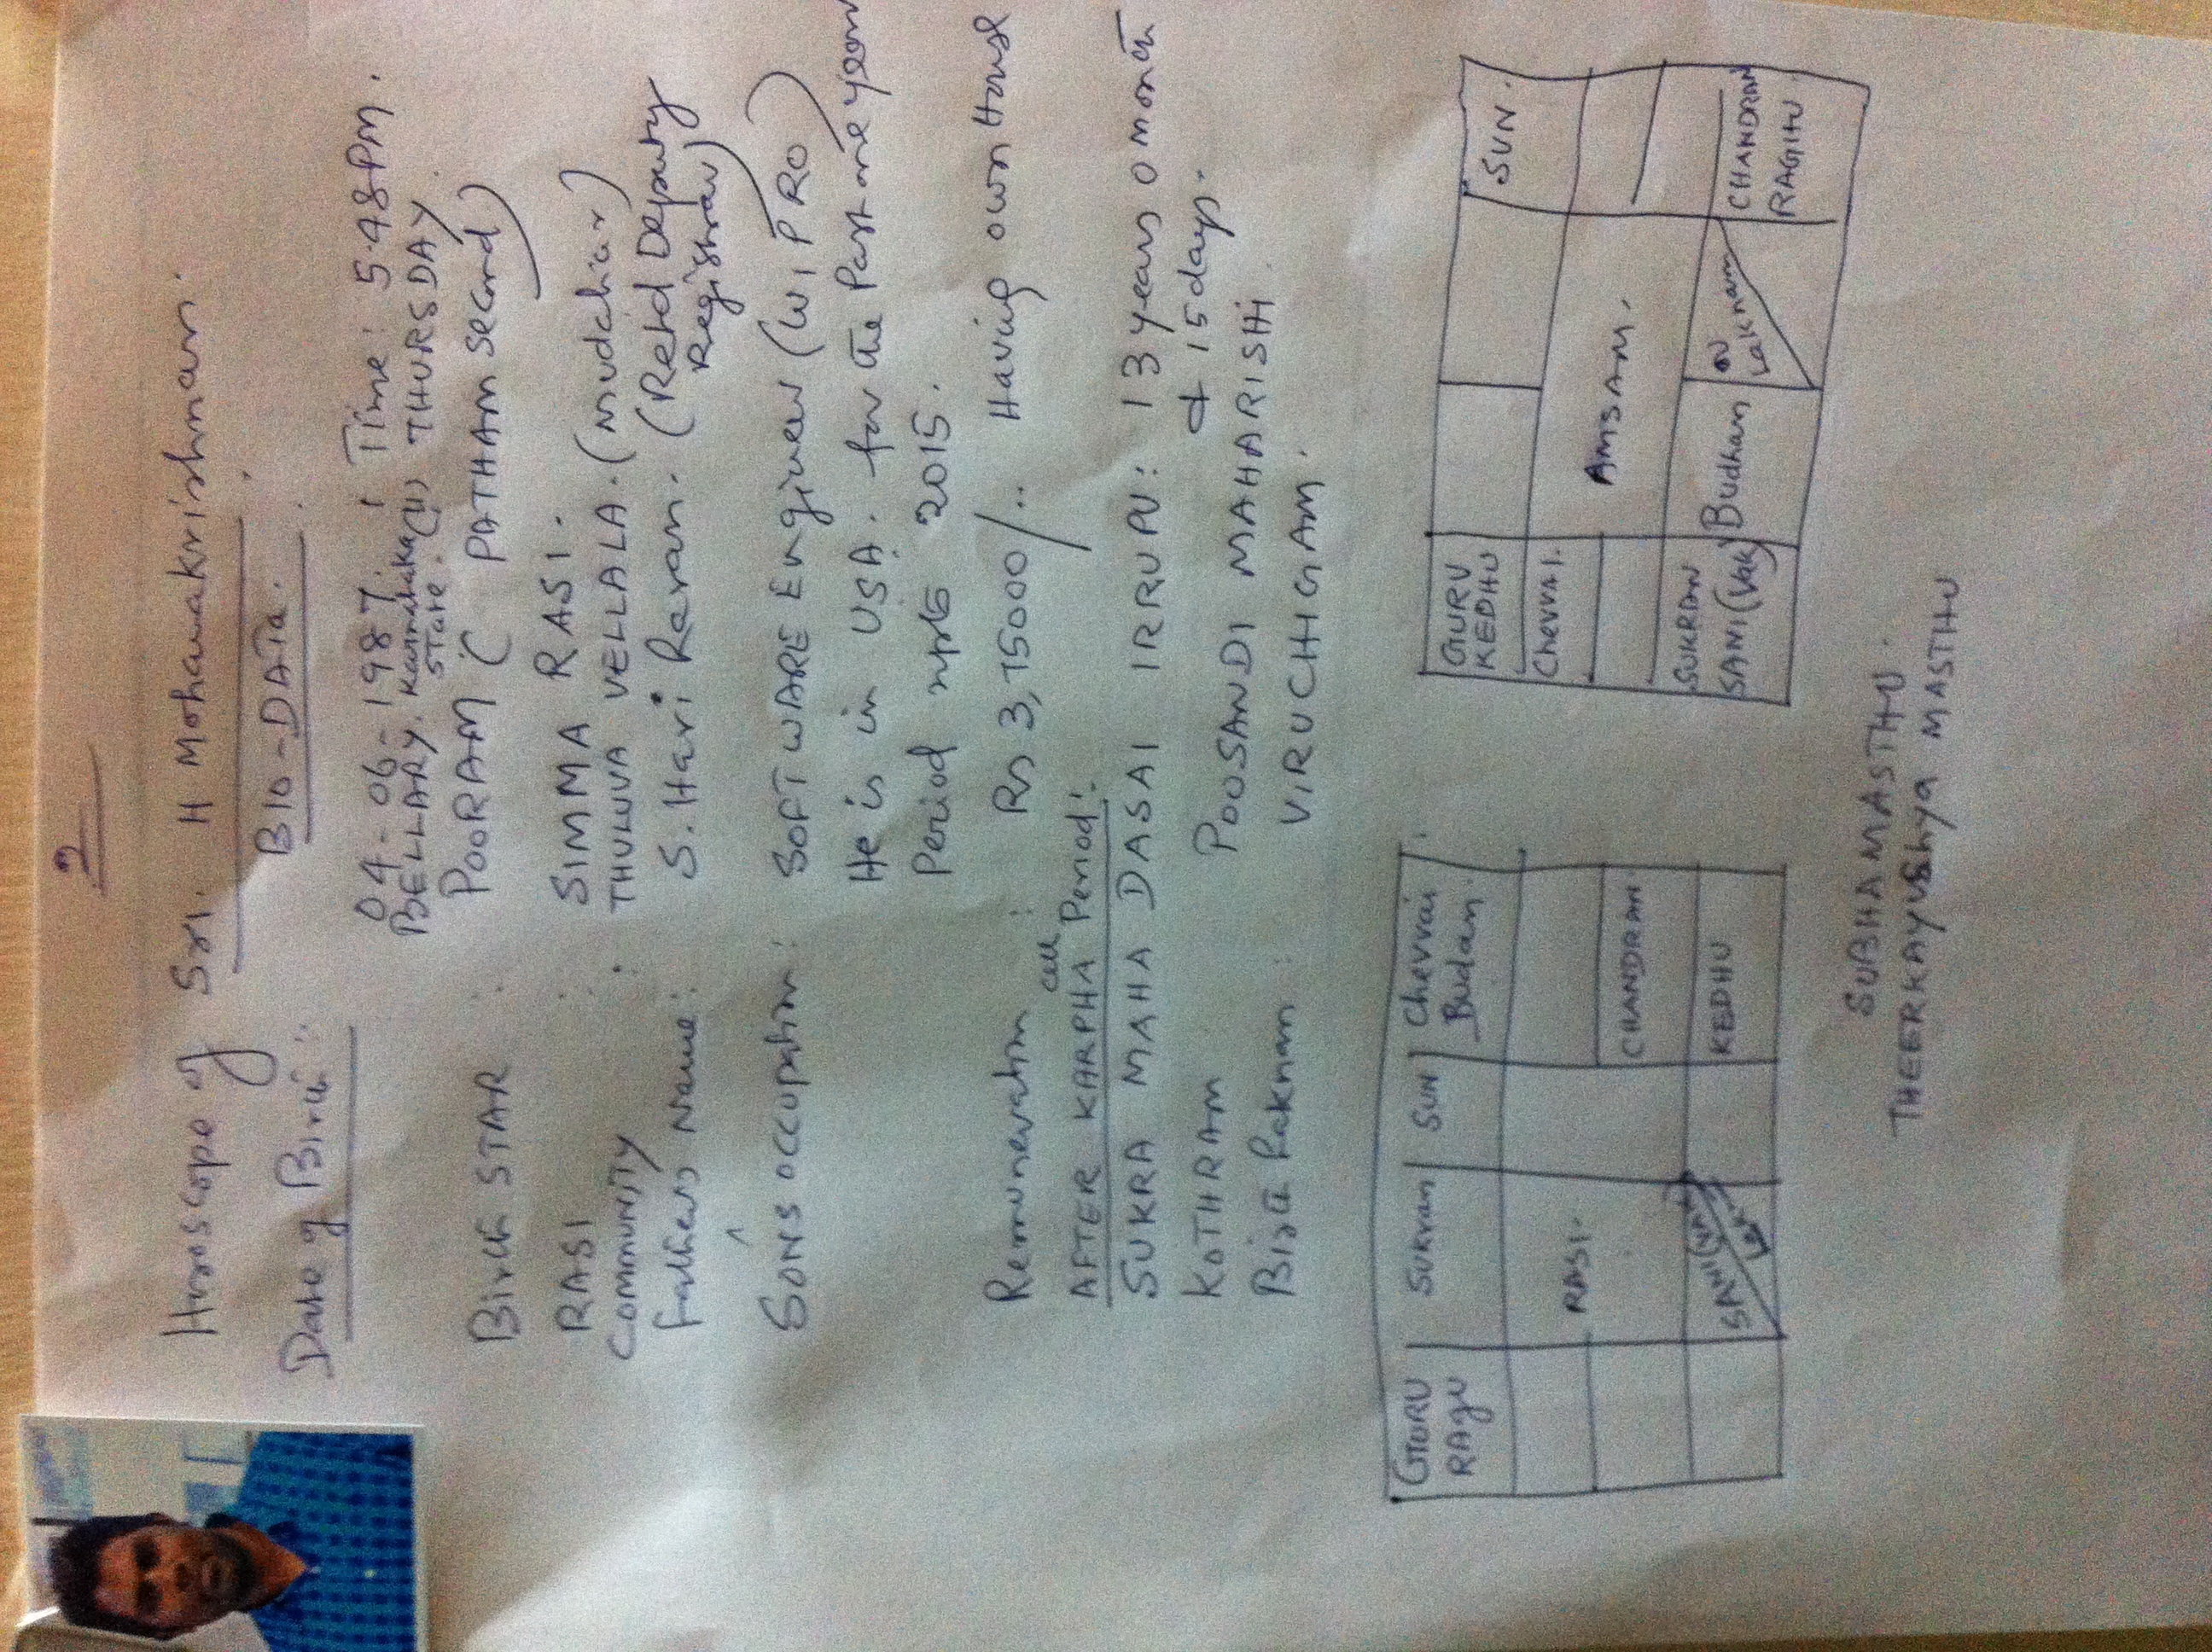 2
Horoscope of Sri. H Mohanakrishnan.
BIO-DATA.
Date of Birth: 04-06-1987. Time: 5.48PM.
BELLARY. Karnataka(H) THURSDAY
State.
Birth STAR : POORAM ( PATHAM second)
RASI : SIMMA RASI.
COMMUNITY : THULUVA VELLALA. (Mudaliar)
Fathers Name: S. Hari Raran. (Retd Deputy
Registrar)
SONS OCCUpation: SOFTWARE Engineer (WIPRO)
He is in USA. for the Past one year
Period upto 2015.
Remuneration : Rs 3,75000/.. Having own House
AFTER KARPHA cell Period:
SUKRA MAHA DASAI IRRUPU: 13 years 0 month
& 15 days.
KOTHRAM POUSANDI MAHARISHI.
Birth Laknam : VIRUCHIGAM.
GURU
RAgu
Sukran
SUN
Chevvai
Budan.
RASI.
CHANDRAN
SANI (Vak)
Lak
KEDHU
GURU
KEDHU
SUN.
Chevvai.
AMSAM.
SUKRAN
SANI (Vak)
Budhan
Laknam
CHANDRAN
RAGHU
SUBHAMASTHU.
THEERKAYUShya MASTHU